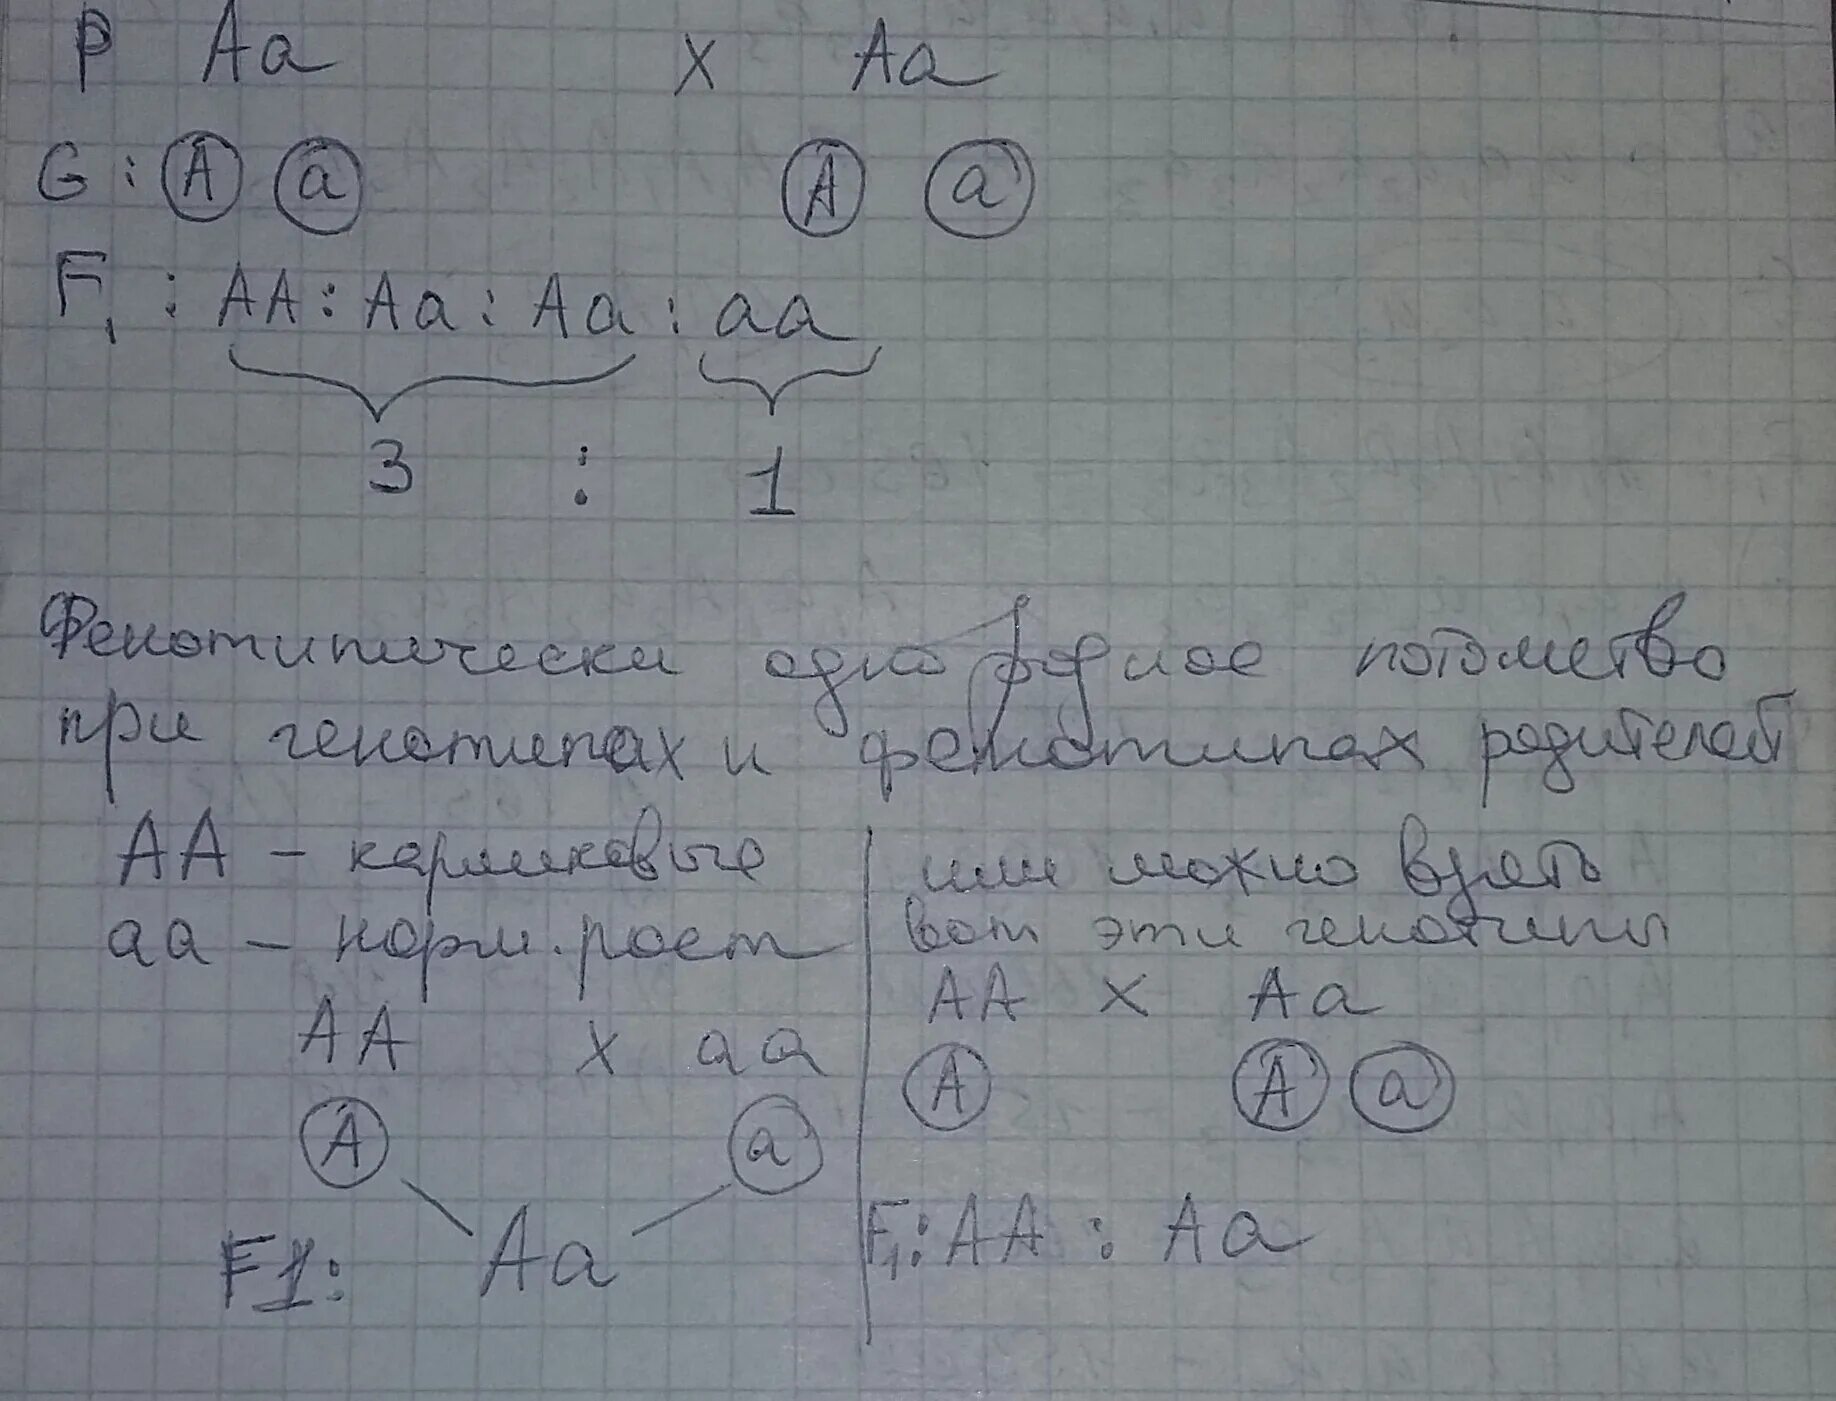 P Aa x Aa
G: A a A a
F1: AA : Aa : Aa : aa
3 : 1
Фенотипически однородное потомство
при генотипах и фенотипах родителей
AA - карликовые
aa - норм. рост
AA x aa
A a
F1: Aa
или можно взять
вот эти генотипы
AA x Aa
A A a
F1: AA : Aa